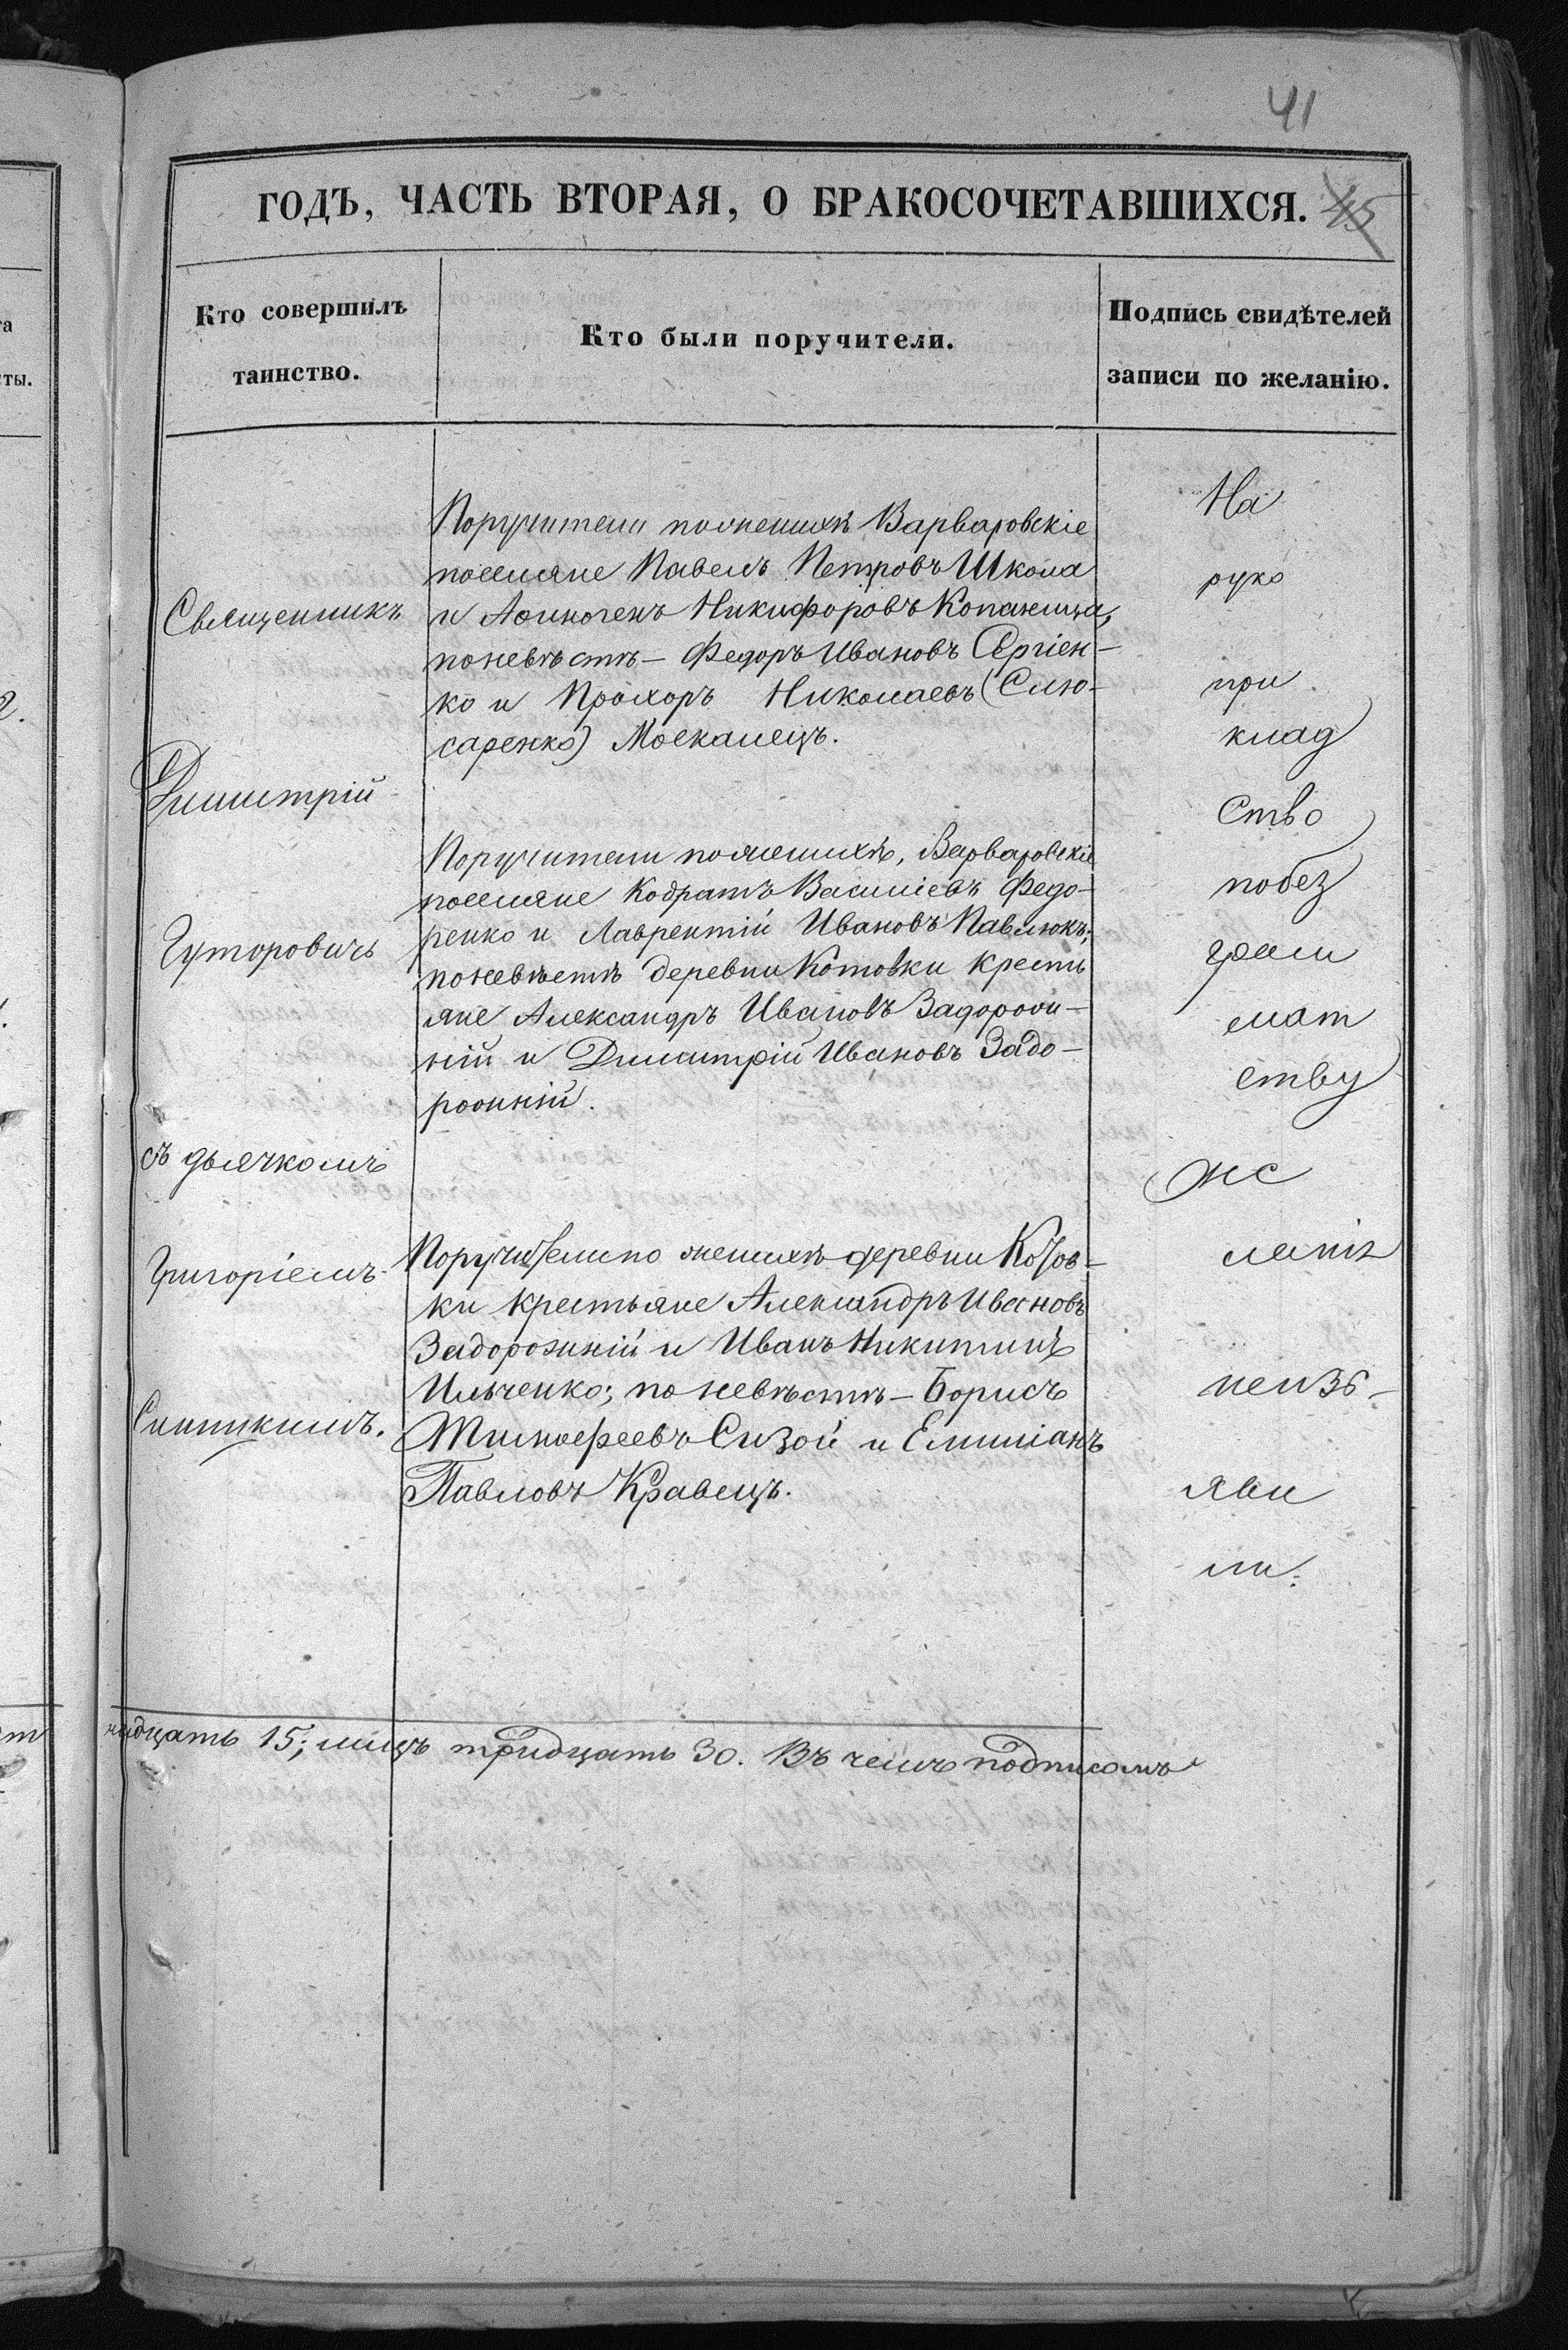 41
ГОДЪ, ЧАСТЬ ВТОРАЯ, О БРАКОСОЧЕТАВШИХСЯ. 45
Кто совершилъ
таинство.
Кто были поручители.
Подпись свидѣтелей
записи по желанію.
Священникъ
Димитрій
Гуторовичъ
съ дьячкомъ
Григоріемъ
Поручители по женихѣ Варваровскіе
поселяне Павелъ Петровъ Школа
и Аѳиногенъ Никифоровъ Копаница,
по невѣстѣ – Федоръ Ивановъ Сергіен-
ко и Прохоръ Николаевъ (Слю-
саренко) Москалецъ.
Поручители по женихѣ, Варваровскіе
поселяне Кодратъ Василіевъ Федо-
ренко и Лаврентій Ивановъ Павлюкъ;
по невѣстѣ деревни Котовки кресть
яне Александръ Ивановъ Задорож-
ній и Димитрій Ивановъ Задо-
рожній.
Поручители по женихѣ деревни Котов-
ки крестьяне Александръ Ивановъ
Задорожній и Иванъ Никитинъ
Ильченко; по невѣстѣ – Борисъ
Тимоѳеевъ Сизой и Емиліанъ
Павловъ Кравецъ.
На
руко
при
клад
ство
по без
грам
мат
ству
же
ланія
не изъ-
яви
ли.
надцать 15; лицъ тридцать 30. Въ чемъ подписомъ
та
ты.
2.